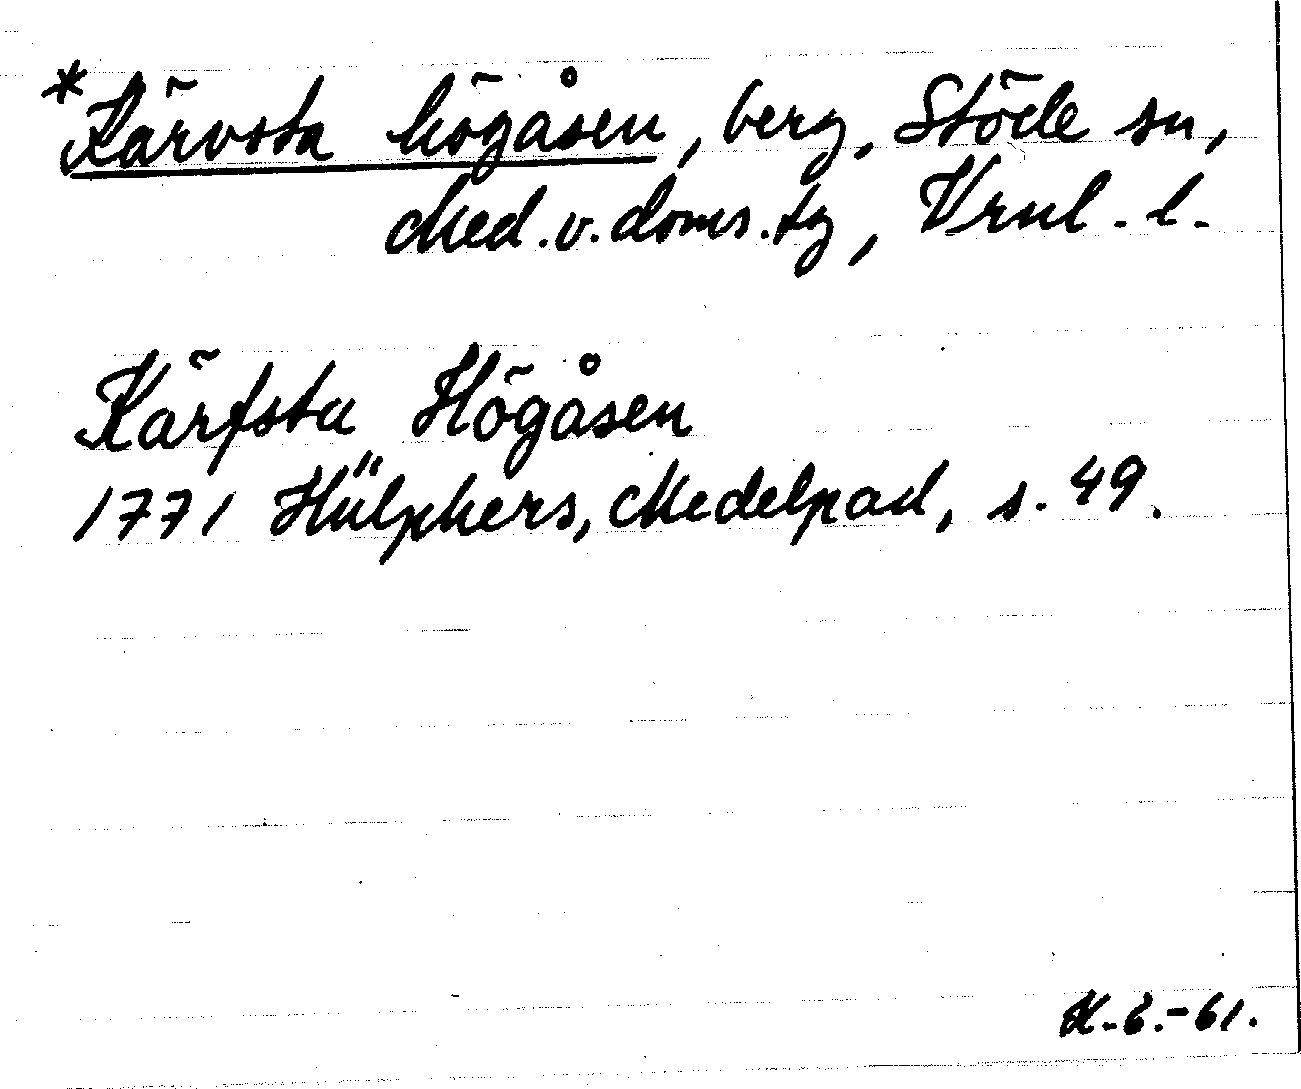 *Kärvsta högåsen, berg, Stöde sn,
Med. v. doms. tg, Vrnl. l.
Kärfsta Högåsen
1771 Hülphers, Medelpad, s. 49.
K. E. -61.